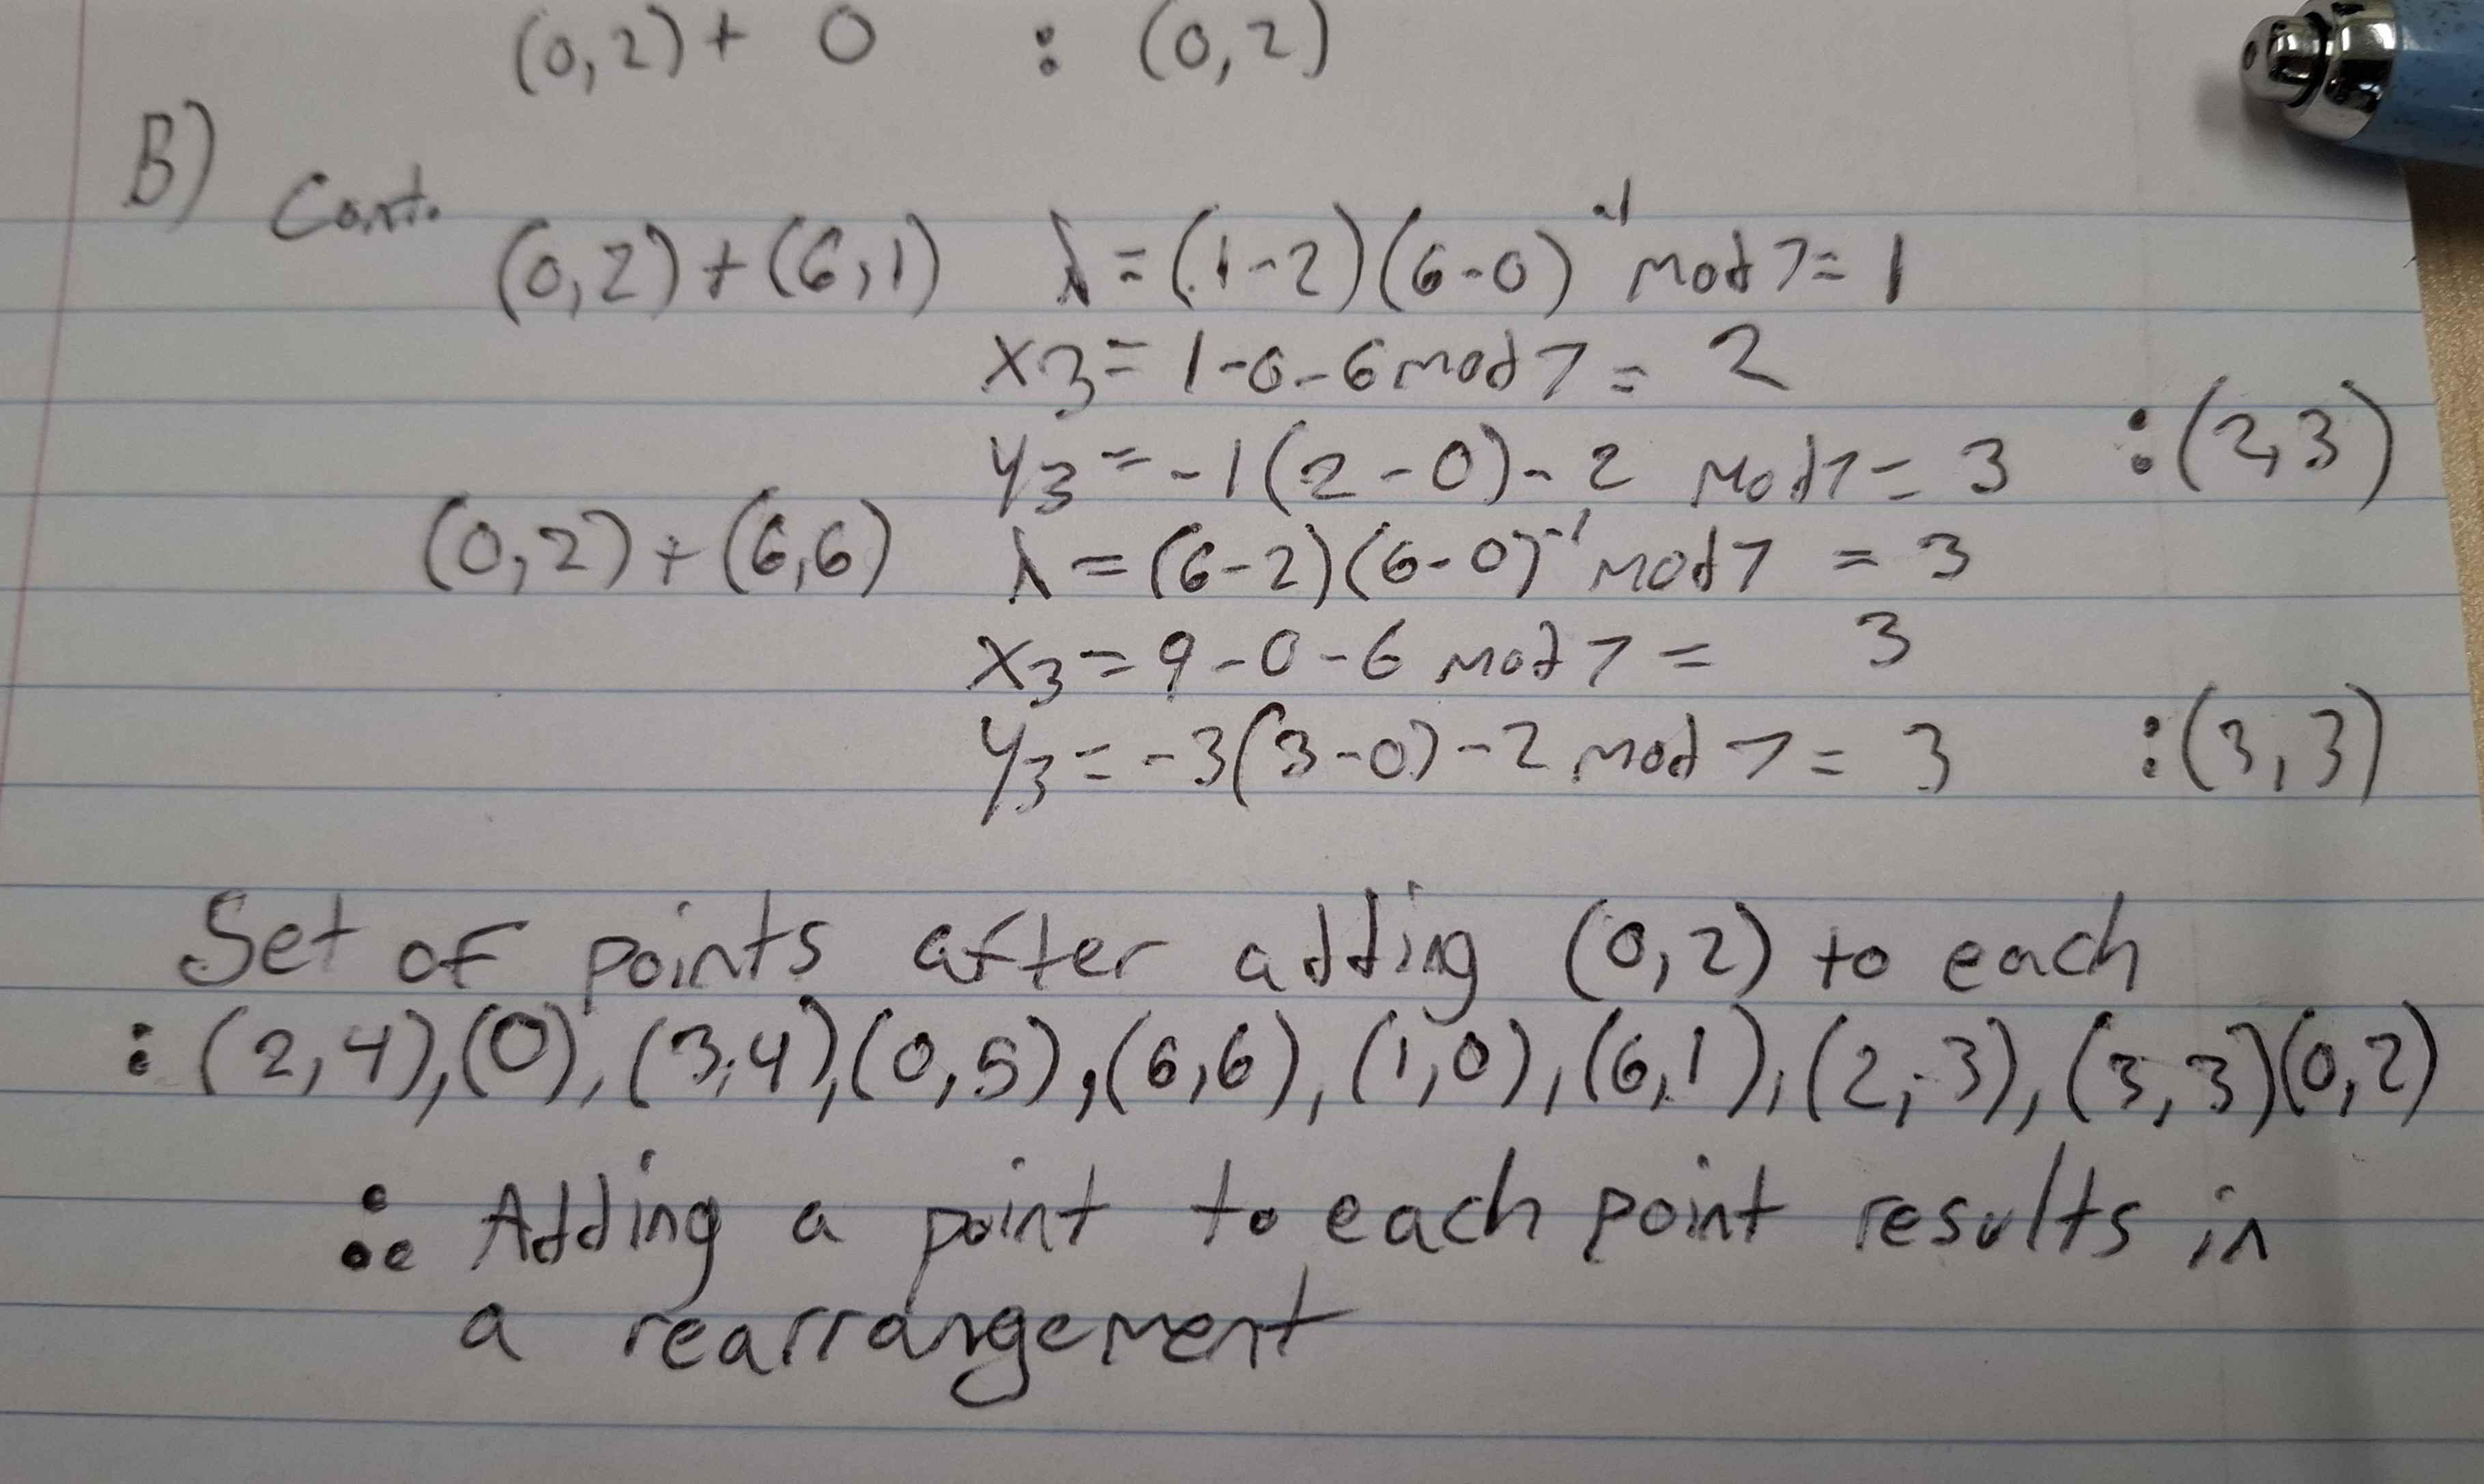 (0,2) + 0 : (0,2)
B) Cont.
(0,2)+(6,1) λ=(1-2)(6-0)⁻¹ mod 7= 1
x3= 1-0-6 mod 7 = 2
y3= -1(2-0)-2 mod 7= 3 :(2,3)
(0,2)+(6,6) λ=(6-2)(6-0)⁻¹ mod 7 = 3
x3=9-0-6 mod 7 = 3
y3= -3(3-0)-2 mod 7= 3 :(3,3)
Set of points after adding (0,2) to each
: (2,4),(0),(3,4),(0,5),(6,6),(1,0),(6,1),(2,3),(3,3)(0,2)
∴ Adding a point to each point results in
a rearrangement